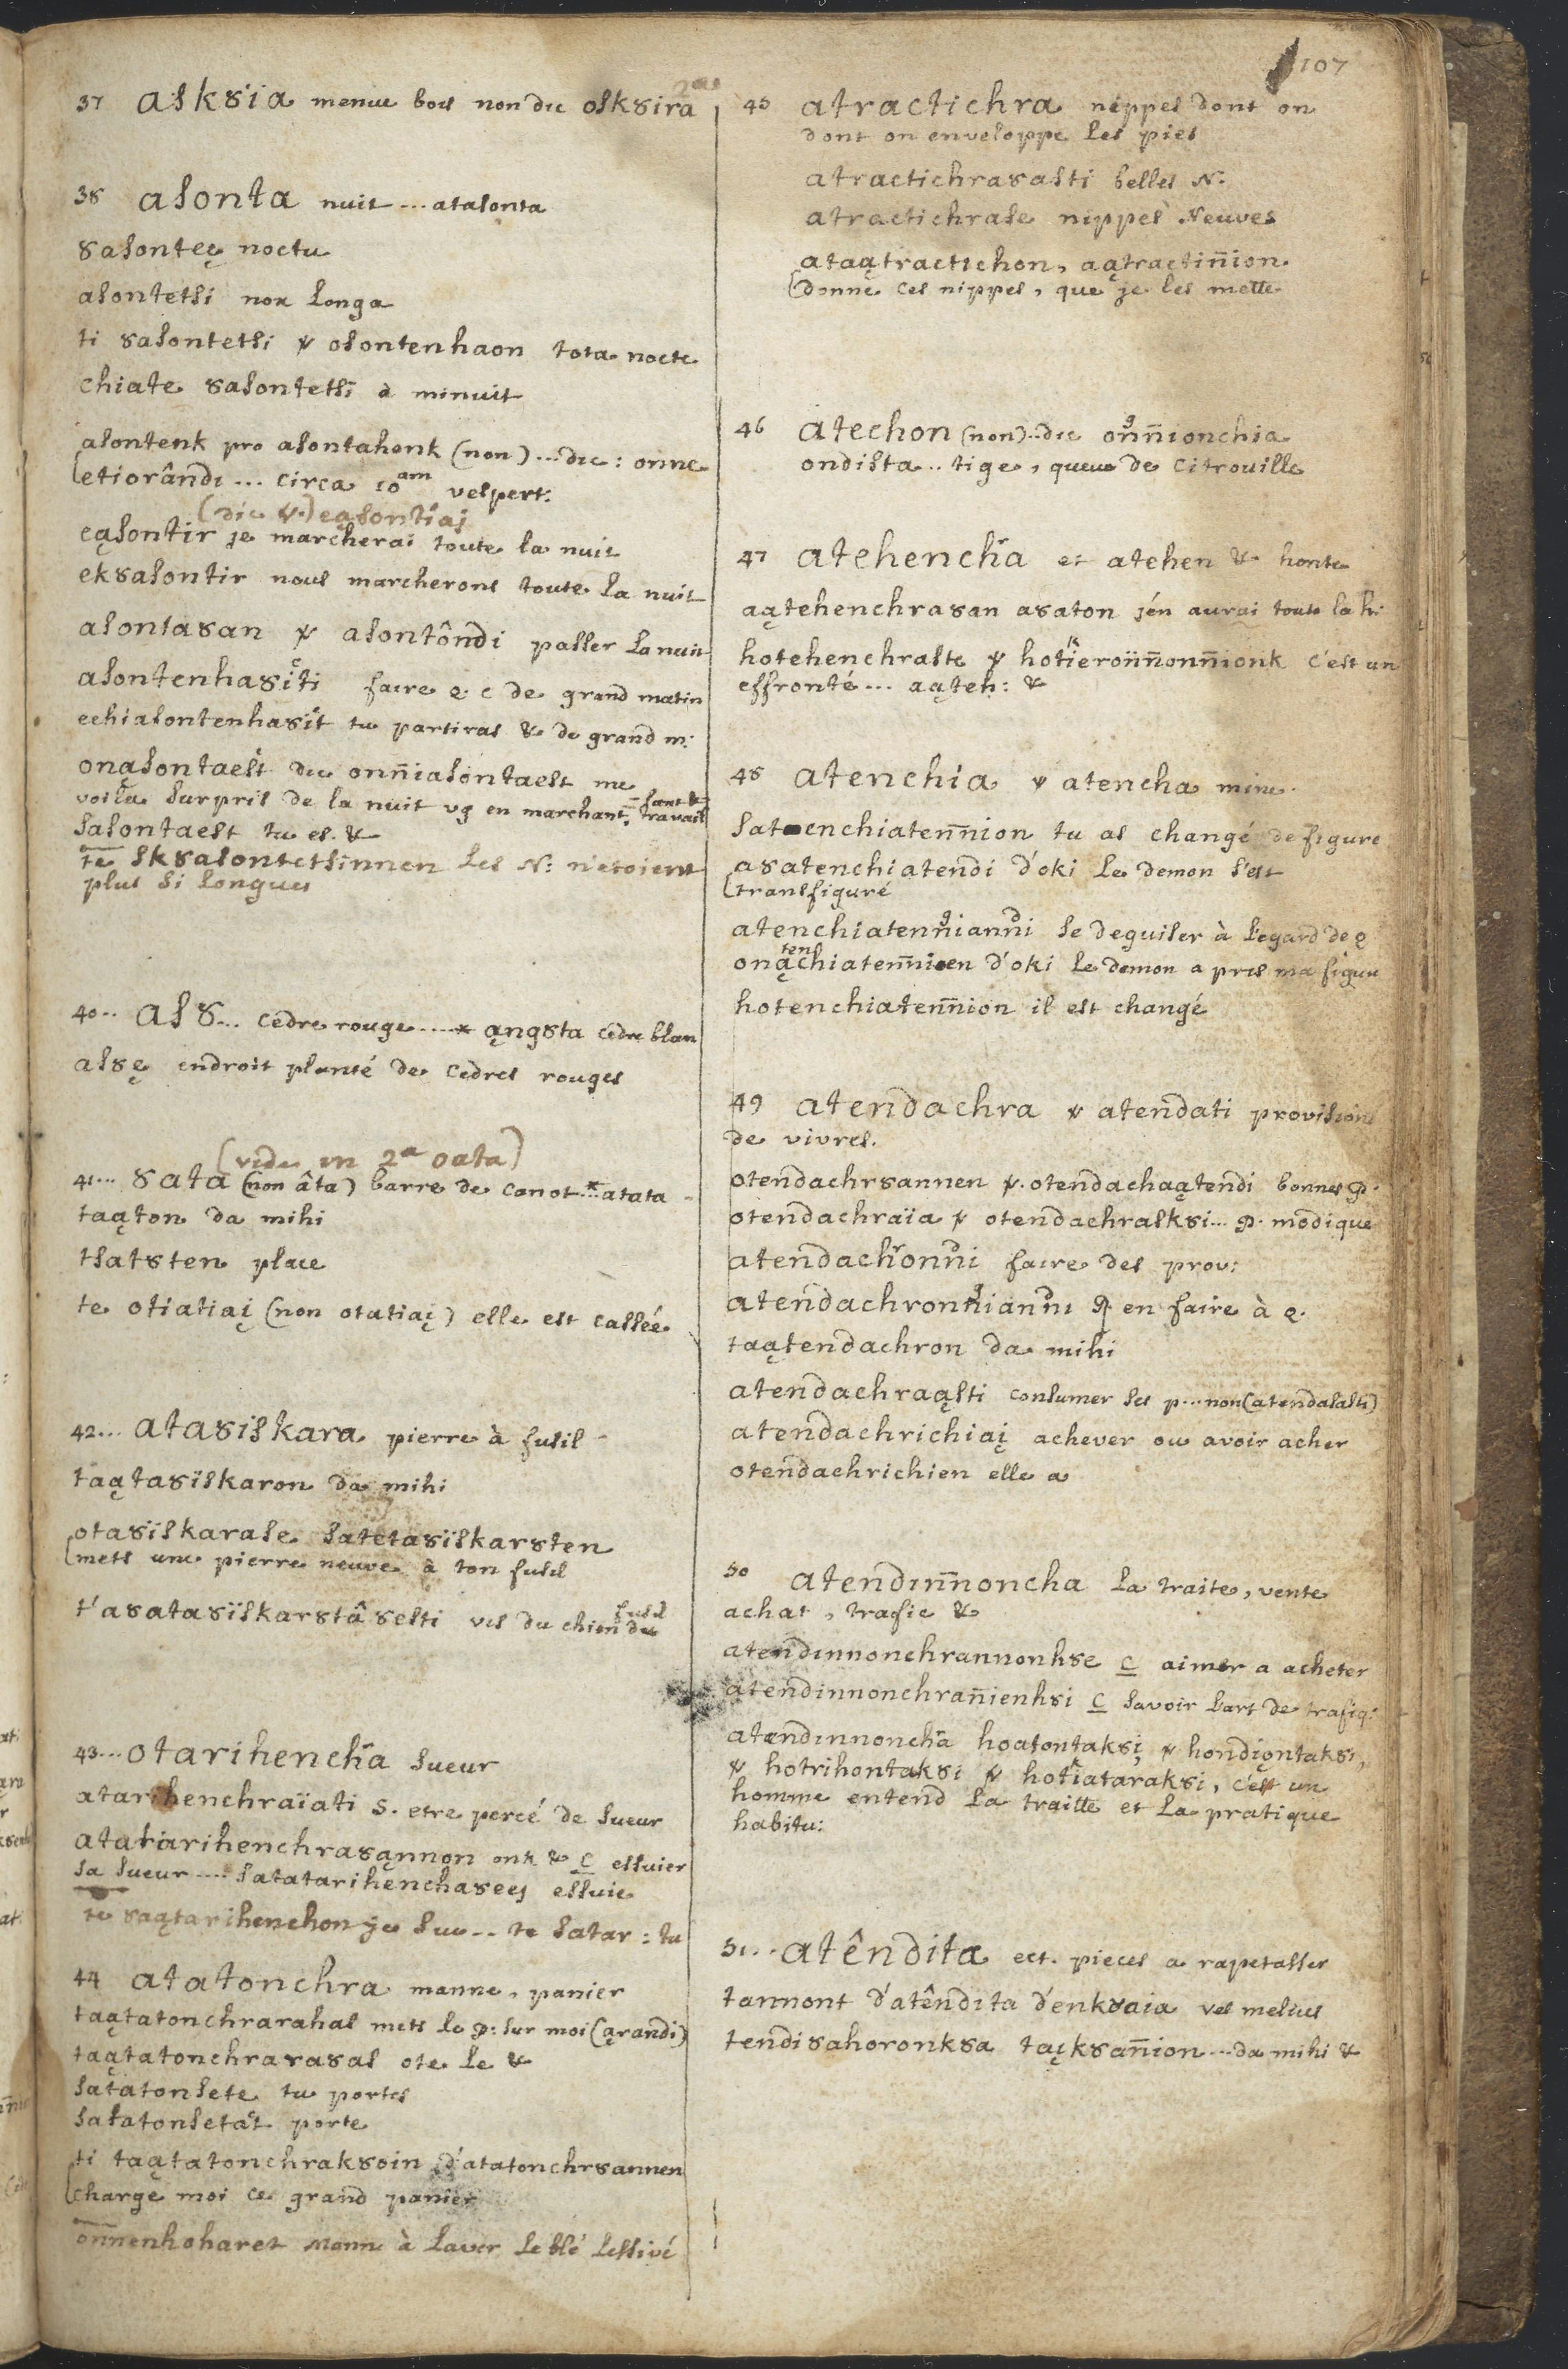 107
37 ask8ia menue bois non dic osk8ira
38 asonta nuit ... atasonta
8asonteę noctu
asontetsi nox longa
ti 8asontetsi & osontenhaon tota nocte
chiate 8asontetsi à minuit
asontenk pro asontahonk (non) ... dic : onne
etiorândi ... circa 10am vespert:
(dic &.) eąsontiaj
eąsontir je marcherai toute la nuit
ek8asontir nous marcherons toute la nuit
asonta8an & asontôndi passer la nuit
asontenha8iti faire q. c de grand matin
echiasontenha8it tu partiras &c de grand m:
onąsontaest dic onn̄iasontaest me
voila surpris de la nuit vg en marchant, travail
sasontaest tu es. &c
te sk8asontetsinnen les N: n'etoient
plus si longues
40.. as8... cedre rouge ....* ąng8ta cedre blan
as8ę endroit planté de cedres rouges
(vide in 2a oata)
41... 8ata (non âta) barre de canot ..* atata
taąton da mihi
tsat8ten place
te otiatiaį (non otatiaį) elle est cassée
42... ata8iskara pierre à fusil
taąta8iskaron da mihi
ota8iskarase sateta8iskar8ten
mets une pierre neuve à ton fusil
t'a8ata8iskar8tâ8esti vis du chien du
fusil
43... otarihencha sueur
atarihenchraïati S. etre percé de sueur
atatarihenchra8ąnnon onk &c C essuier
sa sueur .... satatarihencha8eej essuie
te 8aątarihenchon je sue .. te satar : tu
44 atatonchra manne, panier
taątatonchrarahas mets le p: sur moi (ąrandi)
taątatonchrara8as ote le &c
satatonsete tu portes
satatonsetat porte
ti taątatonchrak8oin d'atatonchr8annen
charge moi ce grand panier
onnenhoharet manne à laver le blé lessivé
45 atractichra nippes dont on
dont on enveloppe les pies
atractichra8asti belles N:
atractichrase nippes Neuves
ataątractichon, aątractin̄ion
donne ces nippes, que je les mette
46 atechon (non)..dic onn̄ionchia
ondista .. tige, queue de citrouille
47 atehencha et atehen &c honte
aątehenchra8an a8aton j'en aurai toute la h:
hotehenchraste & hotieron̄n̄onn̄ionk c'est un
effronté ... aąteh: &c
48 atenchia & atencha mine
satenchiatenn̄ion tu as changé de figure
a8atenchiatendi d'oki le demon s'est
transfiguré
atenchiatenn̄iandi se deguiser à l'egard de q
onątenchiatenn̄ien d'oki le demon a pris ma figure
hotenchiatenn̄ion il est changé
49 atendachra & atendati provisions
de vivres.
otendachr8annen &. otendachaątendi bonnes p.
otendachraïa & otendachrask8i... p. modique
atendachronni faire des prov:
atendachronnianni en faire à q.
taątendachron da mihi
atendachraąsti consumer ses p... non (atendasasti)
atendachrichiaį achever ou avoir achev
otendachrichien elle a
50 atendinn̄oncha la traite, vente
achat, trafic &c
atendinnonchrannonh8e C aimer a acheter
atendinnonchran̄ienh8i C savoir l'art de trafiq:
atendinnoncha hoatontak8i & hondiǫntak8i,
& hotrihontak8i & hotiatarak8i, c'est un
homme entend la traitte et la pratique
habitu:
51... atêndita ect. pieces a rapetasser
tannont d'atêndita d'enk8aia vel melius
tendi8ahoronk8a taįk8an̄ion ... da mihi &c